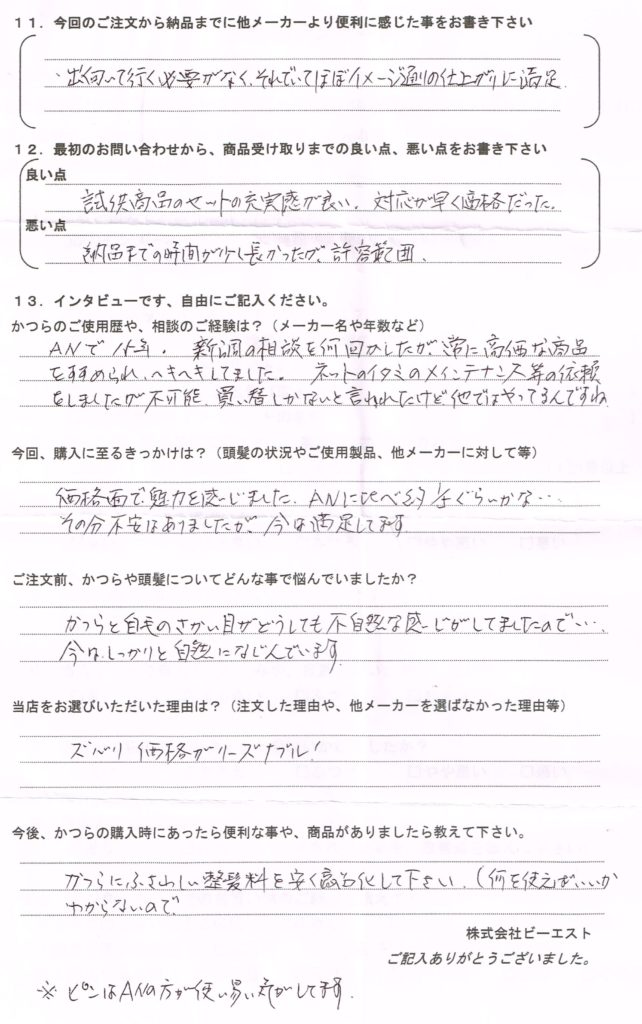 １１．今回のご注文から納品までに他メーカーより便利に感じた事をお書き下さい
・出向いて行く必要がなく、それでいてほぼイメージ通りの仕上がりに満足
１２．最初のお問い合わせから、商品受け取りまでの良い点、悪い点をお書き下さい
良い点
試供商品のセットの充実感が良い、対応が早く価格だった。
悪い点
納品までの時間が少し長かったが、許容範囲、
１３．インタビューです、自由にご記入ください。
かつらのご使用歴や、相談のご経験は？（メーカー名や年数など）
ANで 年、新調の相談を何回かしたが、常に高価な商品
をすすめられ、ヘキヘキしてました。ネットのイタミのメインテナンス等の依頼
をしましたが不可能、買い替しかないと言われたけど他ではやってるんですね
今回、購入に至るきっかけは？（頭髪の状況やご使用製品、他メーカーに対して等）
価格面で魅力を感じました、ANに比べ約 ぐらいかな…
その分不安はありましたが、今は満足してます
ご注文前、かつらや頭髪についてどんな事で悩んでいましたか？
かつらと自毛のさかい目がどうしても不自然な感じがしてましたので…、
今は、しっかりと自然になじんでいます。
当店をお選びいただいた理由は？（注文した理由や、他メーカーを選ばなかった理由等）
ズバリ 価格がリーズナブル！
今後、かつらの購入時にあったら便利な事や、商品がありましたら教えて下さい。
かつらにふさわしい整髪料を安く商品化して下さい、（何を使えばいいか
わからないので、
株式会社ビーエスト
ご記入ありがとうございました。
※ ピンはANの方が使い易い気がしてます、